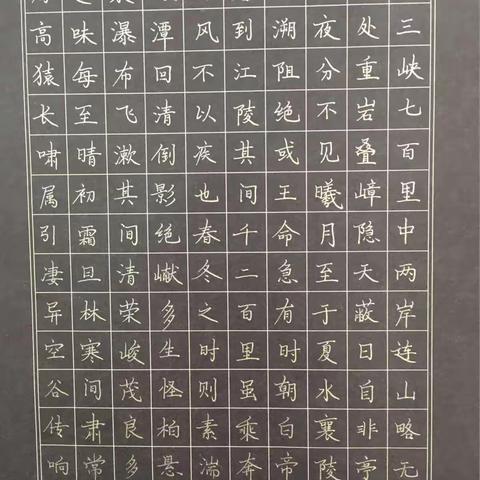 三峡七百里中两岸连山略无
处重岩叠嶂隐天蔽日自非亭
夜分不见曦月至于夏水襄陵
溯阻绝或王命急有时朝白帝
到江陵其间千二百里虽乘奔
风不以疾也春冬之时则素湍
潭回清倒影绝巘多生怪柏悬
瀑布飞漱其间清荣峻茂良多
味每至晴初霜旦林寒间肃常
高猿长啸属引凄异空谷传响